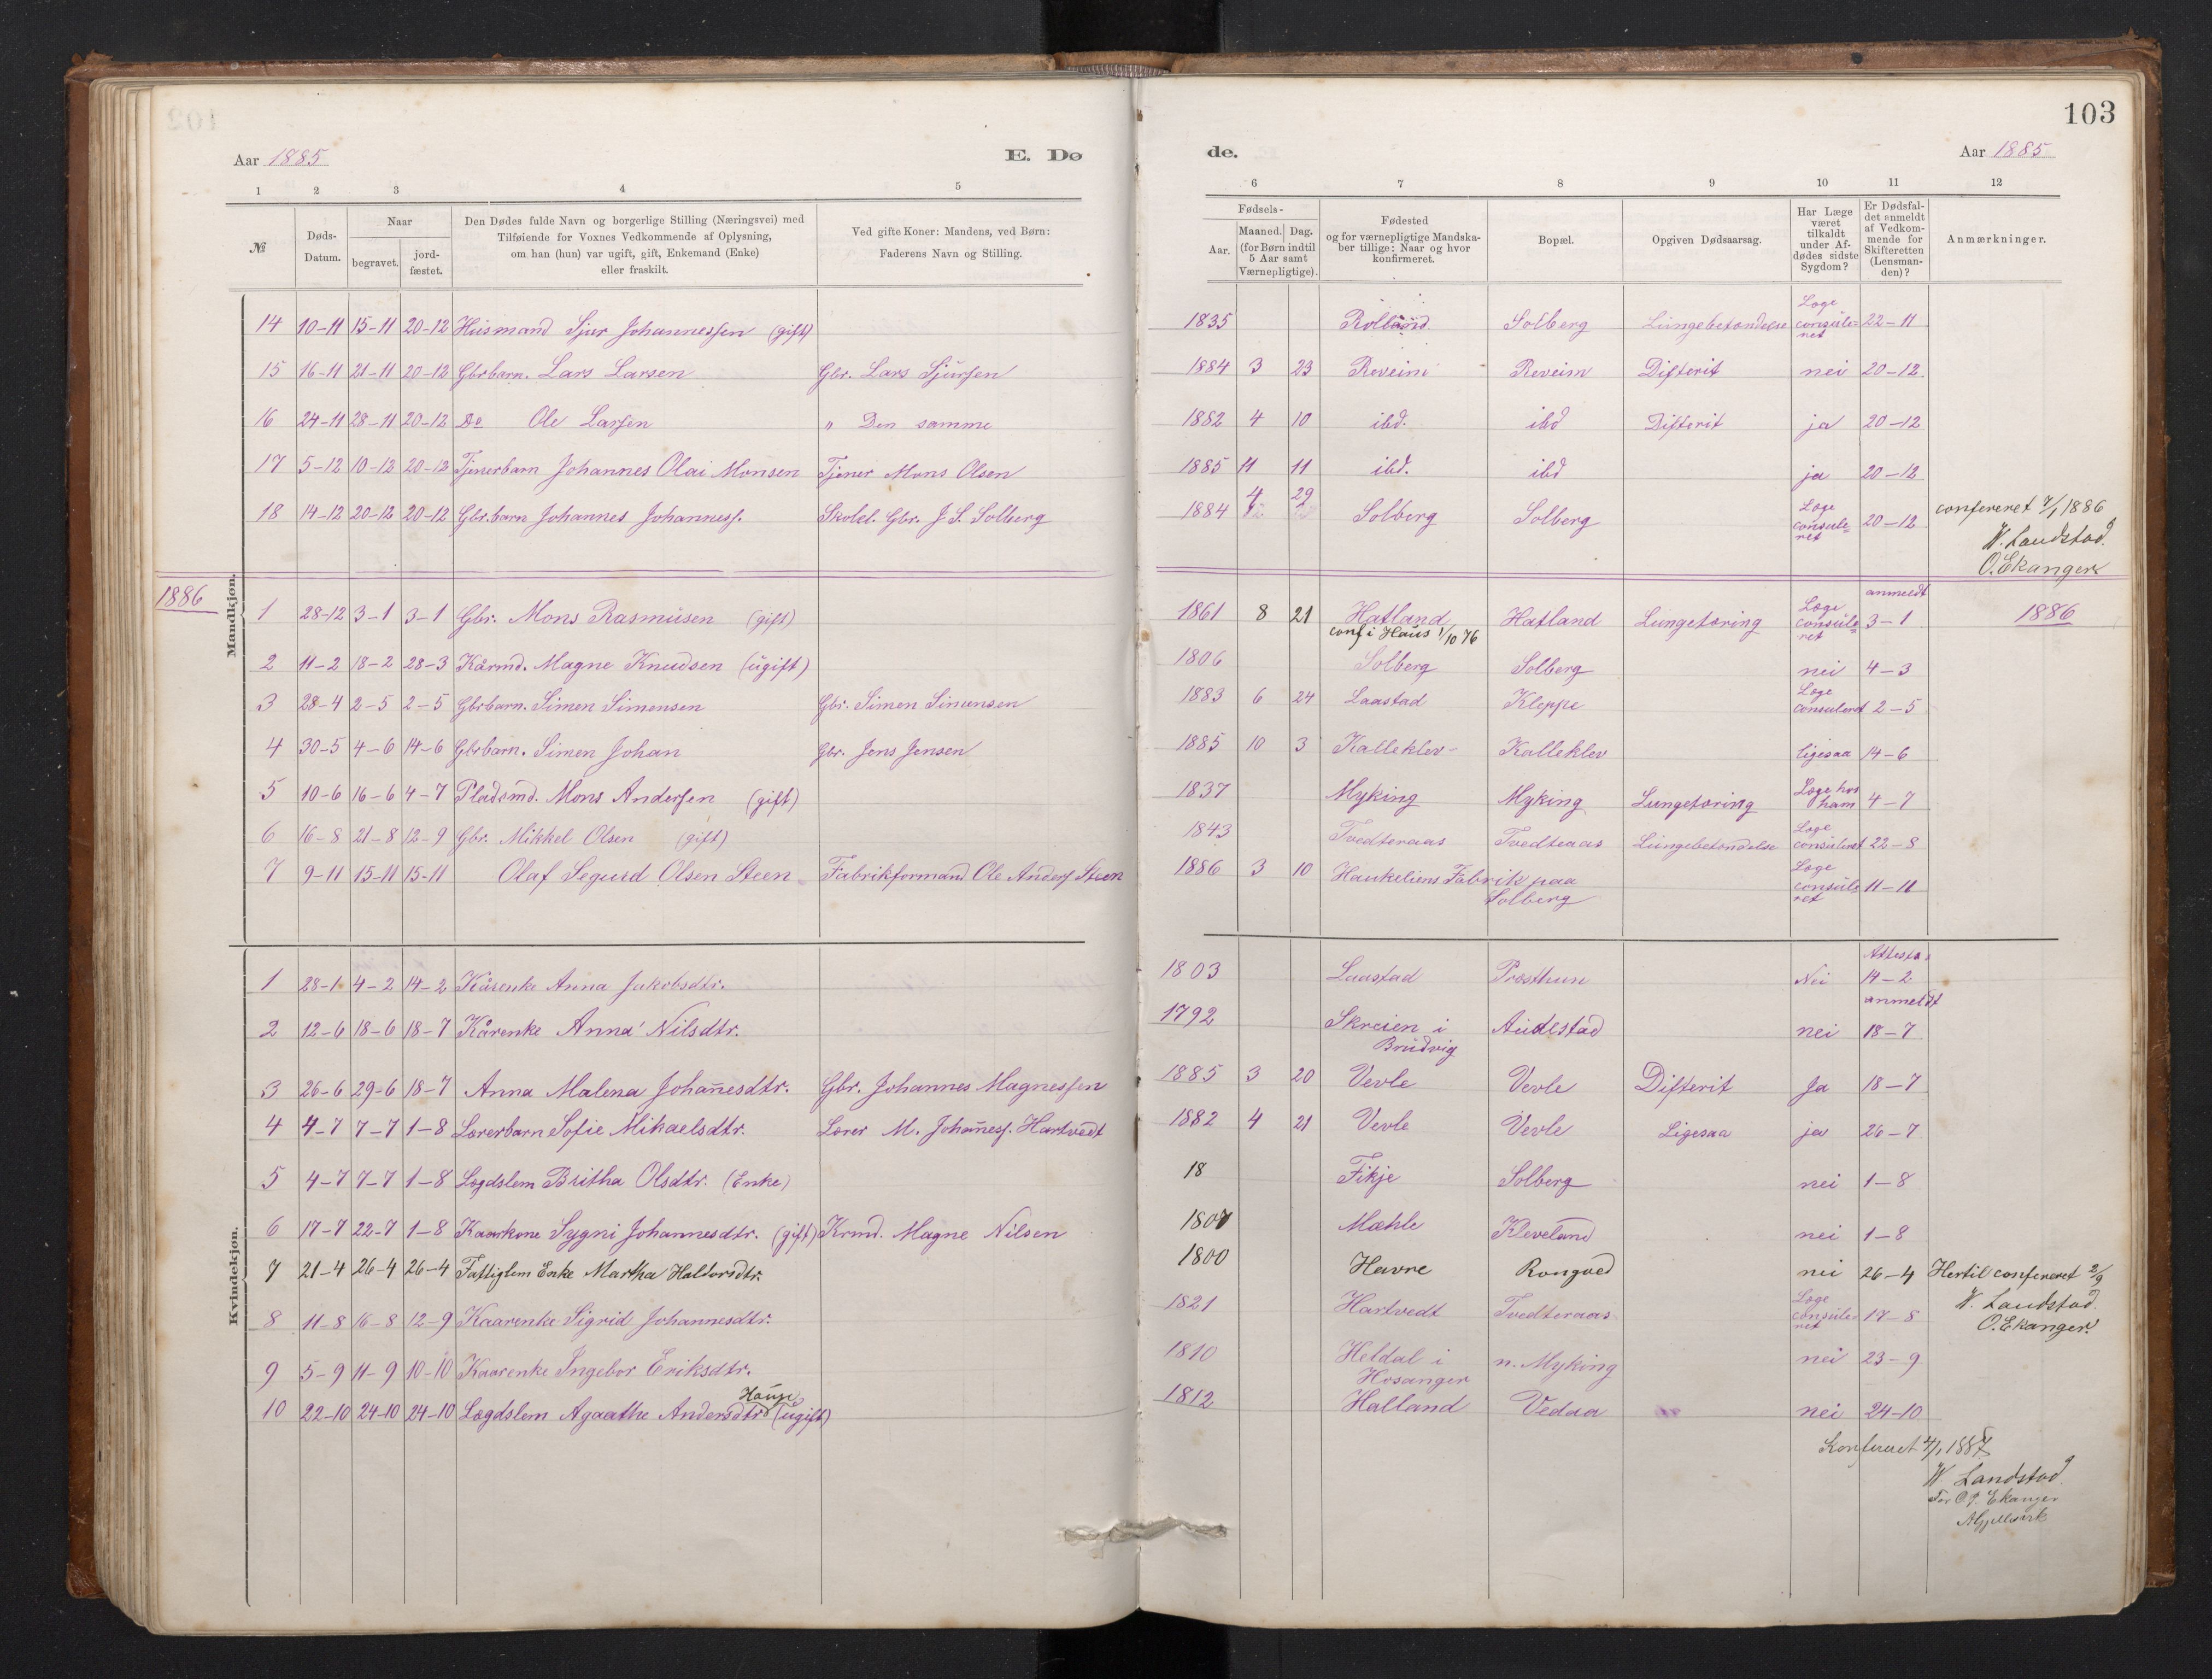 103
Aar 1885 E. Dø de. Aar 1885
1 2 3 4 5 6 7 8 9 10 11 12
№ Døds-Datum. Naar begravet. jord-fæstet. Den Dødes fulde Navn og borgerlige Stilling (Næringsvei) med Tilføiende for Voxnes Vedkommende af Oplysning, om han (hun) var ugift, gift, Enkemand (Enke) eller fraskilt. Ved gifte Koner: Mandens, ved Børn: Faderens Navn og Stilling. Fødsels- Aar. Maaned. Dag. (for Børn indtil 5 Aar samt Værnepligtige). Fødested og for værnepligtige Mandskaber tillige: Naar og hvor konfirmeret. Bopæl. Opgiven Dødsaarsag. Har Læge været tilkaldt under Afdødes sidste Sygdom? Er Dødsfaldet anmeldt af Vedkommende for Skifteretten (Lensmanden)? Anmærkninger.
Mandkjøn.
14 10-11 15-11 20-12 Husmand Sjur Johannessen (gift) 1835 Rolland. Solberg Lungebetændelse Læge consuleret 22-11
15 16-11 21-11 20-12 Gbrbarn. Lars Larsen Gbr. Lars Sjursen 1884 3 23 Reveim Reveim Difterit nei 20-12
16 24-11 28-11 20-12 Do Ole Larsen " Den samme 1882 4 10 ibd. ibd Difterit ja 20-12
17 5-12 10-12 20-12 Tjenerbarn Johannes Olai Monsen Tjener Mons Olsen 1885 11 11 ibd. ibd ja 20-12
18 14-12 20-12 20-12 Gbr.barn Johannes Johanness. Skolel. Gbr. J. S. Solberg 1884 4 29 Solberg Solberg Læge consuleret 20-12 confereret 7/1 1886
W. Landstad.
O. Ekanger
1886 1886
1 28-12 3-1 3-1 Gbr. Mons Rasmusen (gift) 1861 8 21 Hatland conf i Haus 1/10 76 Hatland Lungetæring Læge consuleret anmeldt 3-1
2 11-2 18-2 28-3 Kårmd. Magne Knudsen (ugift) 1806 Solberg Solberg nei 4-3
3 28-4 2-5 2-5 Gbrbarn. Simen Simensen Gbr. Simen Simensen 1883 6 24 Laastad Kleppe Læge consuleret 2-5
4 30-5 4-6 14-6 Gbrbarn. Simen Johan Gbr. Jens Jensen 1885 10 3 Kalleklev Kalleklev ligesaa 14-6
5 10-6 16-6 4-7 Pladsmd. Mons Andersen (gift) 1837 Myking Myking Lungetæring Læge hos ham 4-7
6 16-8 21-8 12-9 Gbr. Mikkel Olsen (gift) 1843 Tvedteraas Tvedteraas Lungebetændelse Læge consuleret 22-8
7 9-11 15-11 15-11 Olaf Segurd Olsen Steen Fabrikformand Ole Anders Steen 1886 3 10 Haukeliens Fabrik paa Solberg Læge consuleret 11-11
Kvindekjøn.
1 28-1 4-2 14-2 Kårenke Anna Jakobsdtr. 1803 Laastad Præsthun Nei 14-2
2 12-6 18-6 18-7 Kårenke Anna Nilsdtr. 1792 Skreien i Brudvig Audestad nei anmeldt 18-7
3 26-6 29-6 18-7 Anna Malena Johan̄esdtr. Gbr. Johannes Magnessen 1885 3 20 Vevle Vevle Difterit Ja 18-7
4 4-7 7-7 1-8 Lærerbarn Sofie Mikaelsdtr. Lærer M. Johan̄ess. Hartvedt 1882 4 21 Vevle Vevle Ligesaa ja 26-7
5 4-7 7-7 1-8 Lægdslem Britha Olsdtr. (Enke) 18 Fikje Solberg nei 1-8
6 17-7 22-7 1-8 Kaarkone Sygni Johannesdtr. (gift) Krmd. Magne Nilsen 1807 Mæhle Kleveland nei 1-8
7 21-4 26-4 26-4 Fattiglem Enke Martha Haldorsdtr. 1800 Havre Rongved nei 26-4 Hertil confereret 2/9
W. Landstad.
O. Ekanger.
8 11-8 16-8 12-9 Kaarenke Sigrid Johannesdtr. 1821 Hartvedt Tvedteraas Læge consuleret 17-8
9 5-9 11-9 10-10 Kaarenke Ingebor Eriksdtr. 1810 Heldal i Hosanger n. Myking nei 23-9
10 22-10 24-10 24-10 Lægdslem Agaathe Andersdtr (ugift) 1812 Halland Vedaa nei 24-10
Konfereret 4/1 1887
W Landstad.
For O. Ekanger